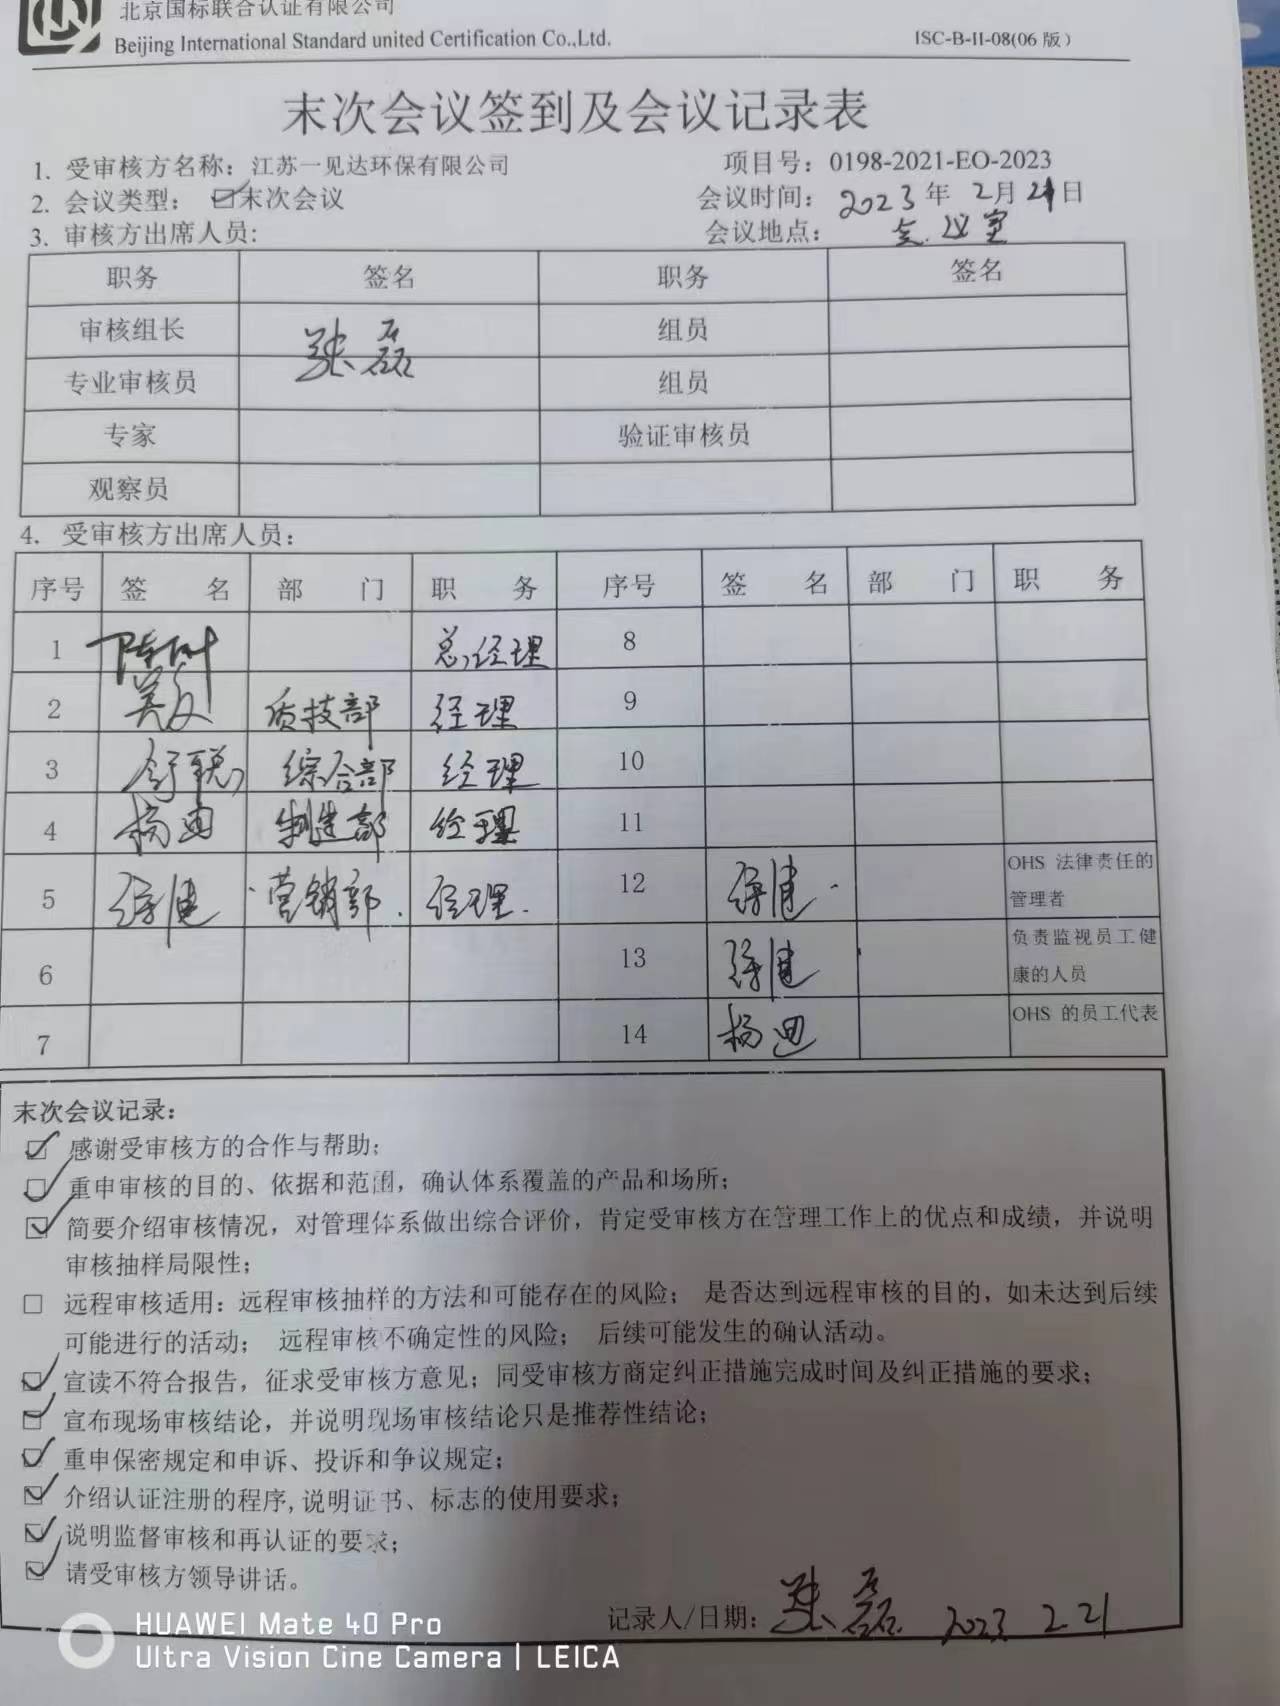 北京国标联合认证有限公司
Beijing International Standard united Certification Co.,Ltd.
ISC-B-II-08(06 版)
末次会议签到及会议记录表
1. 受审核方名称: 江苏一见达环保有限公司 项目号: 0198-2021-EO-2023
2. 会议类型: ☑末次会议 会议时间: 2023 年 2月 21日
3. 审核方出席人员: 会议地点: 会议室
职务 签名 职务 签名
审核组长 张磊 组员
专业审核员 组员
专家 验证审核员
观察员
4. 受审核方出席人员:
序号 签 名 部 门 职 务 序号 签 名 部 门 职 务
1 总经理 8
2 质技部 经理 9
3 舒聪 综合部 经理 10
4 杨迪 制造部 经理 11
5 徐健 营销部 经理 12 徐健 OHS 法律责任的
管理者
6 13 徐健 负责监视员工健
康的人员
7 14 杨迪 OHS 的员工代表
末次会议记录:
☑ 感谢受审核方的合作与帮助;
☑ 重申审核的目的、依据和范围，确认体系覆盖的产品和场所;
☑ 简要介绍审核情况，对管理体系做出综合评价，肯定受审核方在管理工作上的优点和成绩，并说明
审核抽样局限性;
□ 远程审核适用: 远程审核抽样的方法和可能存在的风险; 是否达到远程审核的目的，如未达到后续
可能进行的活动; 远程审核不确定性的风险; 后续可能发生的确认活动。
☑ 宣读不符合报告，征求受审核方意见; 同受审核方商定纠正措施完成时间及纠正措施的要求;
☑ 宣布现场审核结论，并说明现场审核结论只是推荐性结论;
☑ 重申保密规定和申诉、投诉和争议规定;
☑ 介绍认证注册的程序,说明证书、标志的使用要求;
☑ 说明监督审核和再认证的要求;
☑ 请受审核方领导讲话。
记录人/日期: 张磊 2023 2.21
HUAWEI Mate 40 Pro
Ultra Vision Cine Camera | LEICA